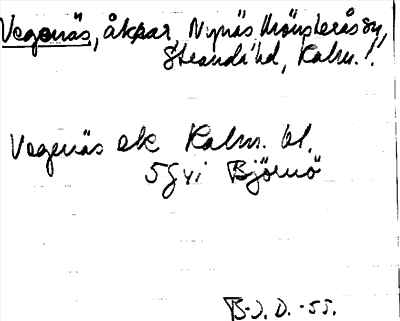 Vegenäs, åkrar, Nynäs, Mönsterås sn,
Stranda hd, Kalm. l.
Vegenäs ek Kalm. bl.
5g vi Björnö
B-J. D. -55.